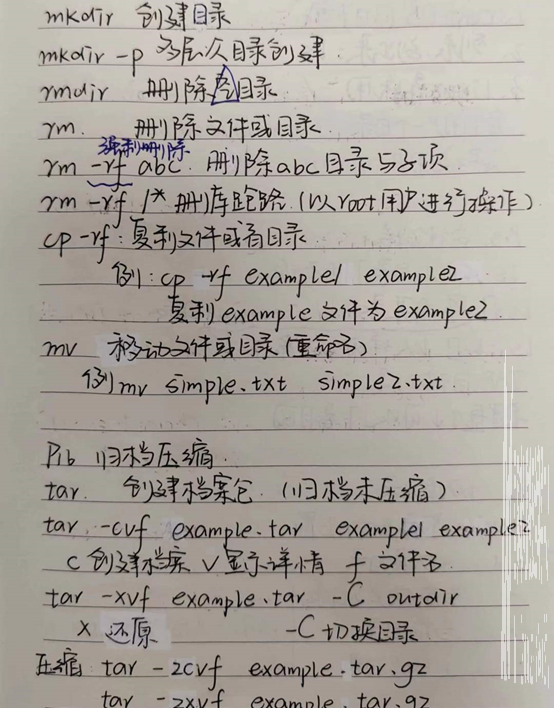 mkdir 创建目录
mkdir -p 多层次目录创建
rmdir 删除空目录
rm. 删除文件或目录.
强制删除
rm -rf abc. 删除abc目录与子项
rm -rf /* 删库跑路 (以root用户进行操作)
cp -rf: 复制文件或者目录.
例: cp -rf example1 example2
复制example文件为example2.
mv 移动文件或目录 (重命名)
例 mv simple.txt simple2.txt.
P16 归档压缩.
tar. 创建档案包. (归档未压缩)
tar -cvf example.tar example1 example2
c 创建档案 v 显示详情 f 文件名.
tar -xvf example.tar -C outdir
x 还原 -C 切换目录
压缩: tar -zcvf example.tar.gz
tar -zxvf example.tar.gz